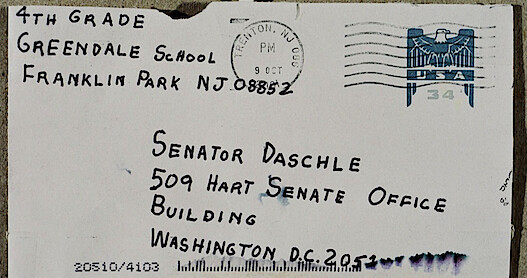 4TH GRADE
GREENDALE SCHOOL
FRANKLIN PARK NJ 08852
TRENTON, NJ
PM
9 OCT
USA
34
SENATOR DASCHLE
509 HART SENATE OFFICE
BUILDING
WASHINGTON D.C.
20510/4103